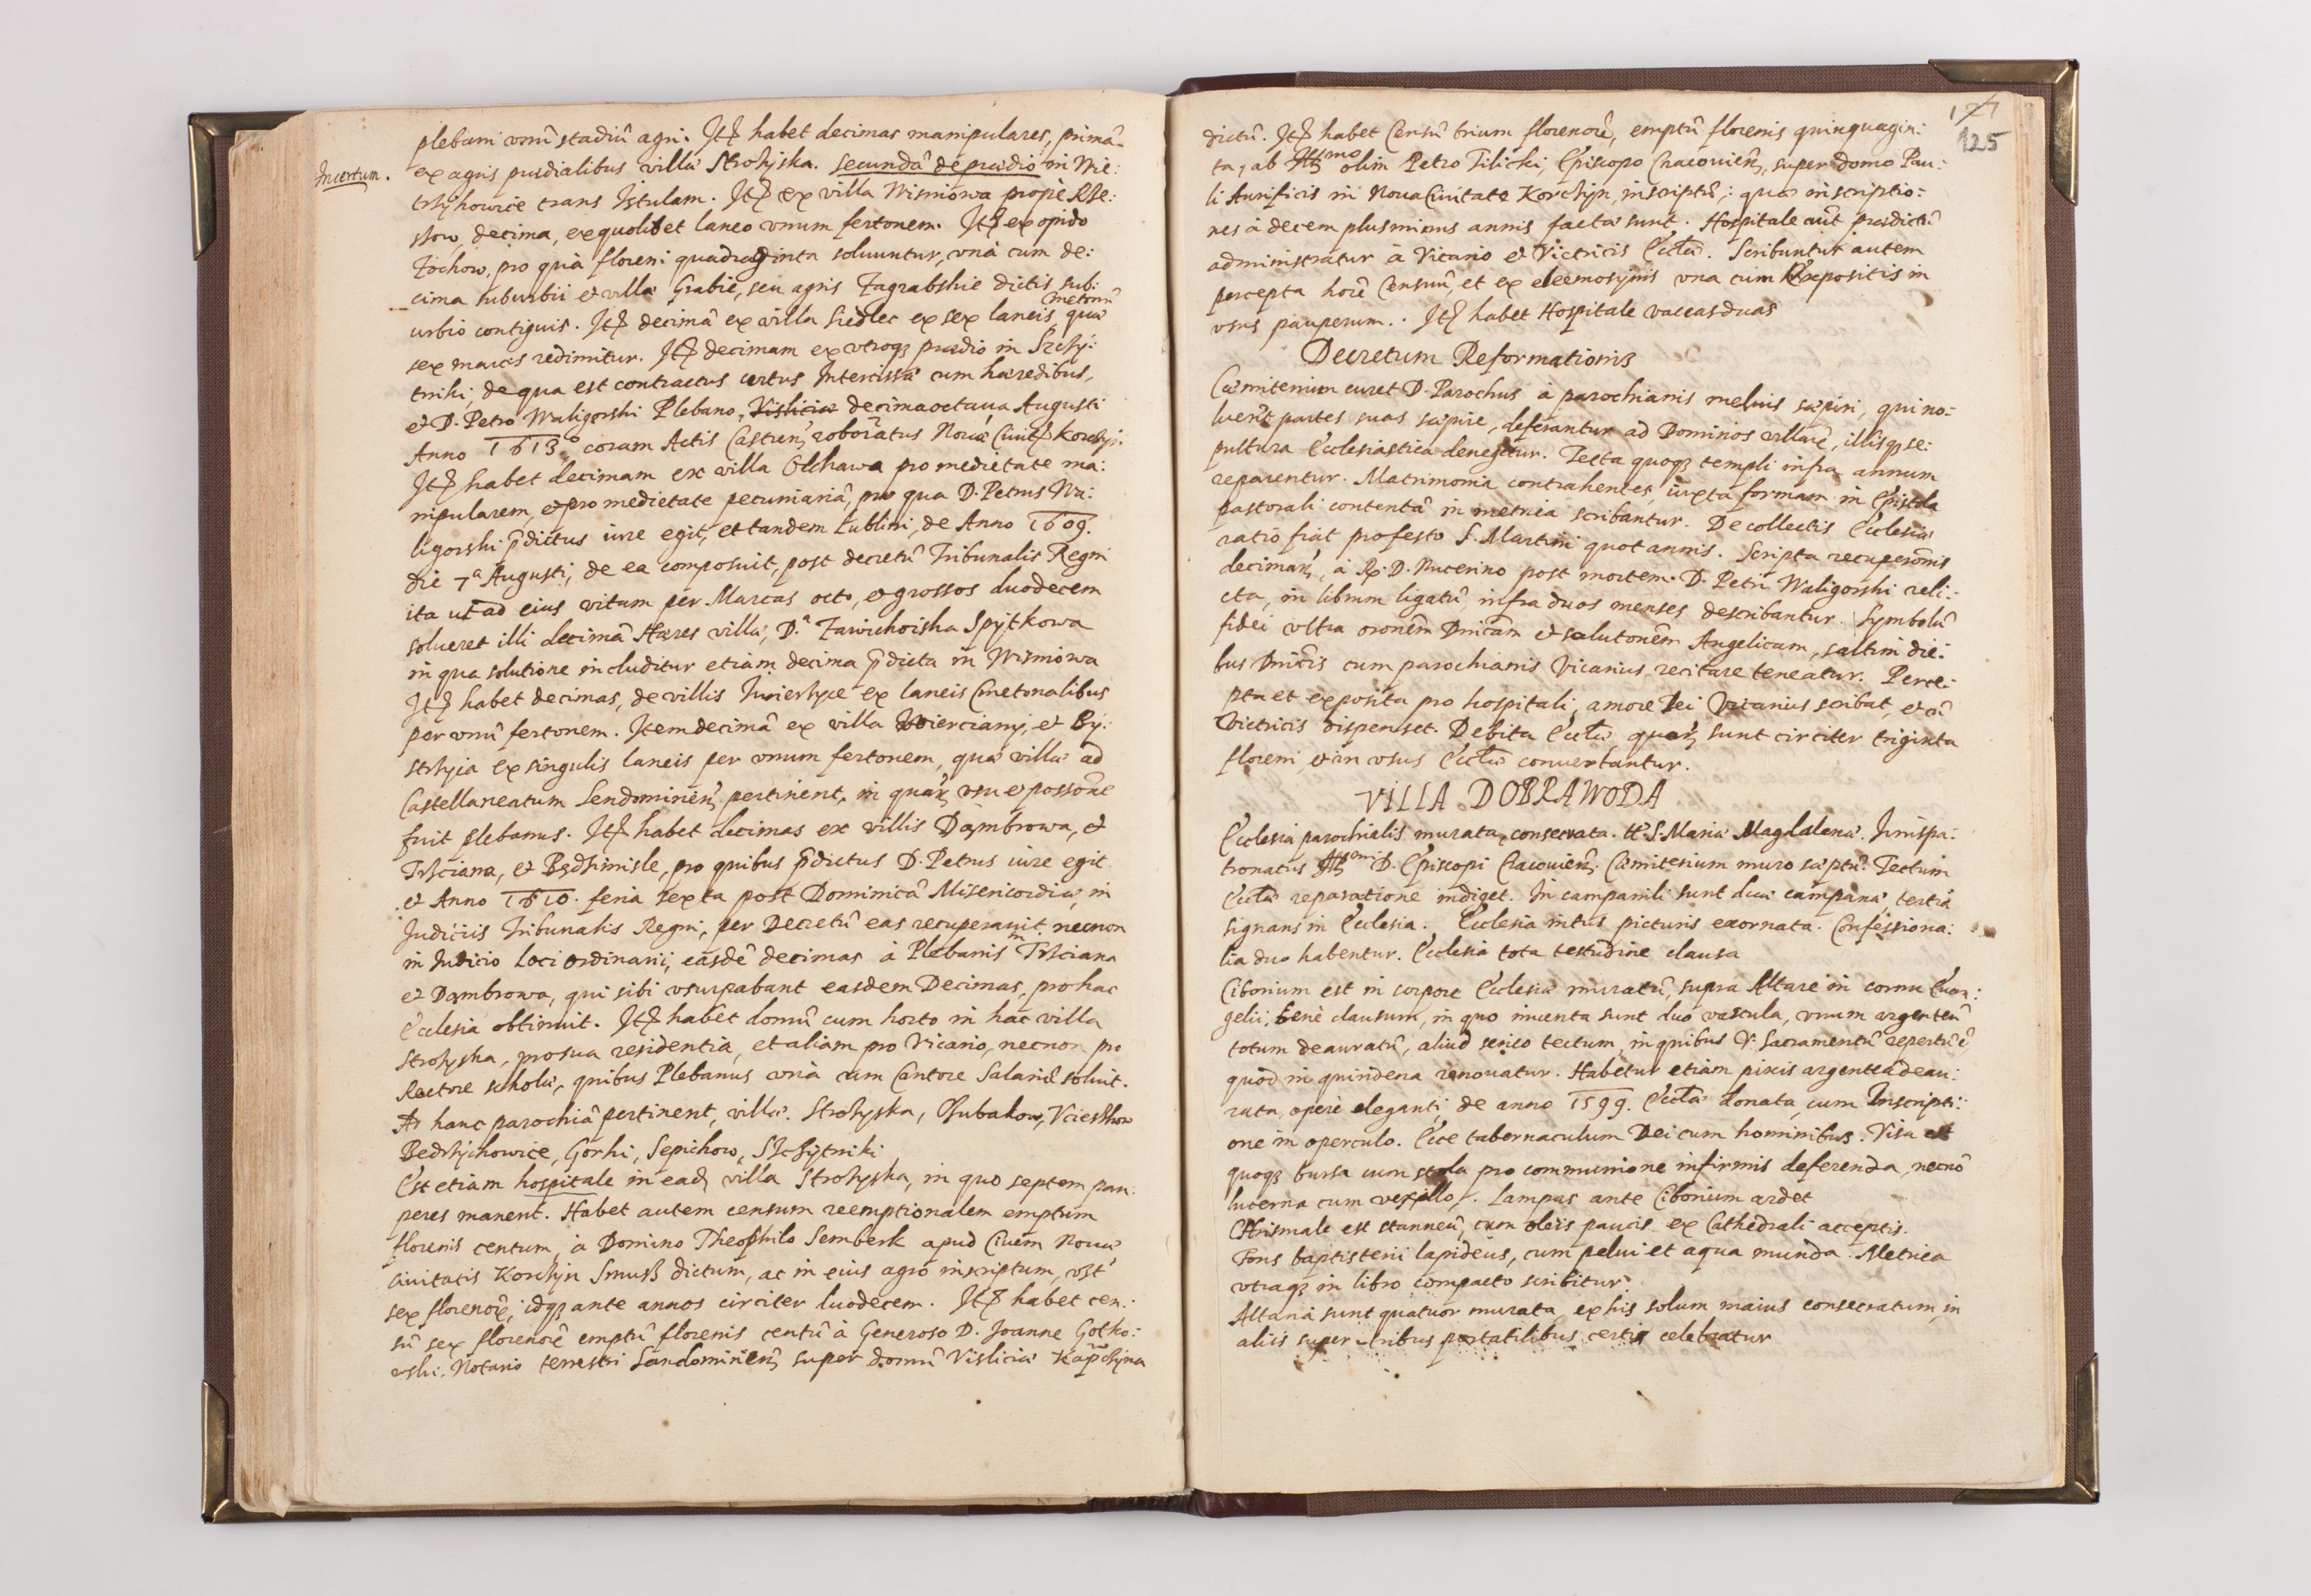 plebani vnũ stadiũ agri. Itẽ habet decimas manipulares, primã
Incertum.
ex agris prædialibus villæ Strożyska. secundã de prædio in Wie:
trzychowice trans Istulam. Itẽ ex villa Wisniowa propè Rze:
szow, decima, ex quolibet laneo vnum fertonem. Itẽ ex opido
Żochow, pro quâ floreni quadraginta soluuntur, vnà cum de:
cima suburbii et villæ Grabie, seu agris Zagrabskie dictis sub:
urbio contiguis. Itẽ decimã ex villa Siedlec ex sex laneis cmetonũ quæ
sex marcis redimitur. Itẽ decimam ex vtroqꝫ prædio in Szczy:
tniki, de qua est contractus certus Intercissæ cum hæredibus,
et D. Petro Waligorski Plebano, Visliciæ decimaoctaua Augusti
Anno 1613º coram Actis Castreñ roboratus Nouæ Ciuitẽ Korczyn.
Itẽ habet decimam ex villa Olchawa pro medietate ma:
nipularem, et pro medietate pecuniariã, pro qua D. Petrus Wa:
ligorski p̃dictus iure egit, et tandem Lublini, de Anno 1609.
die 7ª Augusti, de ea composuit, post decretũ Tribunalis Regni
ita ut ad eius vitam per Marcas octo, et grossos duodecem
solueret illi decimã Hæres villæ, D.ª Zawichoiska Spytkowa
in qua solutione includitur etiam decima p̃dicta in Wisniowa
Itẽ habet decimas, de villis Zwierzyce ex laneis Cmetonalibus
per vnũ fertonem. Item decimã ex villa Wierciany, et By:
strzyca ex singulis laneis per vnum fertonem, quæ villæ ad
Castellaneatum Sendomirieñ pertinent, in quaꝝ vsu et possoñe
fuit plebanus. Itẽ habet decimas ex villis Dąmbrowa, et
Trzciana, et Będzimisle, pro quibus p̃dictus D. Petrus iure egit
et Anno 1610. feria sexta post Dominicã Misericordiæ, in
Judiciis Tribunalis Regni, per Decretũ eas recuperauit. necnon
in Iudicio Loci ordinarii, easdẽ decimas à Plebanis in Trzciana
et Dąmbrowa, qui sibi vsurpabant easdem Decimas, pro hac
Ecclesia obtinuit. Itẽ habet domũ cum horto in hac villa
Strozyska, pro sua residentia, et aliam pro Vicario, necnon pro
Rectore scholæ, quibus Plebanus vnà cum Cantore Salariũ soluit.
Ad hanc parochiã pertinent, villæ. Strozyska, Chubakow, Vcieszkow
Bedrzychowice, Gorki, Sepichow, Szczytniki
Est etiam hospitale in eadẽ villa Strozyska, in quo septem pau:
peres manent. Habet autem censum reemptionalem emptum
florenis centum, à Domino Theophilo Semberk apud Ciuem Nouæ
ciuitatis Korczyn Smusz dictum, ac in eius agro inscriptum, vst
sex florenorũ, idqꝫ ante annos circiter luodecem. Itẽ habet cen:
sũ sex florenorũ emptũ florenis centũ à Generoso D. Joanne Gotko:
wski. Notario terrestri Sandomirieñ super domũ Visliciæ Kapczyna
127
125
dictũ. Itẽ habet Censũ trium florenorũ, emptũ florenis quinquagin:
ta, ab Illmo olim Petro Tilicki, Episcopo Cracouieñ, super domo Pau:
li Aurificis in Noua Ciuitate Korczyn, inscriptũ, quæ inscriptio:
nes à decem plusminus annis factæ sunt. Hospitale aut̃ prædictũ
administratur à Vicario et Victricis Ecctæ. Scribuntur autem
percepta horũ Censuũ, et ex eleemosynis vna cum Expositis in
vsus pauperum. Itẽ habet Hospitale vaccas duas
Decretum Reformationis
Cæmiterium curet D. Parochus à parochianis melius sæpiri, qui no:
luerit partes suas sæpire, deferantur ad Dominos villarũ, illisqꝫ se:
pultura Ecclesiastica denegetur. Tecta quoqꝫ templi infra annum
reparentur. Matrimonia contrahentes, iuxta formam in Epistola
pastorali contentã in metrica scribantur. De collectis Ecclesiæ
ratio fiat pro festo S. Martini quot annis. Scripta recuperoñis
decimaꝝ, à R. D. Nucerino post mortem D. Petri Waligorski reli:
cta, in librum ligatũ, infra duos menses describantur. Symbolũ
fidei vltra oroñem Dnicam et salutoñem Angelicam, saltim die:
bus Dnicis cum parochianis Vicarius recitare teneatur. Perce:
pta et exposita pro hospitali, amore Dei Vicarius scribat, et cũ
Victricis dispenset. Debita Ecctæ quæ sunt circiter triginta
floreni, et in vsus Ecctæ conuertantur.
VILLA DOBRAWODA
Ecclesia parochialis murata, consecrata. tt. S. Mariæ Magdalenæ. Jurispa:
tronatus Illsmi D. Episcopi Cracouieñ. Cæmiterium muro sæptũ. Tectum
Ecctæ reparatione indiget. In campanili sunt duæ campanæ, tertia
signans in Ecclesia. Ecclesia intus picturis exornata. Confessiona:
lia duo habentur. Ecclesia tota testudine clausa
Ciborium est in corpore Ecclesiæ muratũ, supra Altare in cornu Euan:
gelii, benè clausum, in quo inuenta sunt duo vascula, vnum argenteũ
totum deauratũ, aliud serico tectum, in quibus V. Sacramentũ repertũ ẽ,
quod in quindena renouatur. Habetur etiam pixis argentea deau:
rata, operè eleganti, de anno 1599. Ecctæ donata, cum Inscripti:
one in operculo. Ecce tabernaculum Dei cum hominibus. Visa est
quoqꝫ bursa cum stola pro communione infirmis deferenda, necnõ
lucerna cum vexillo. Lampas ante Ciborium ardet
Chrismale est stanneũ, cum oleis paucis ex Cathedrali acceptis.
Fons baptisterii lapideus, cum pelui et aqua munda. Metrica
vtraqꝫ in libro compacto scribitur.
Altaria sunt quatuor murata, ex his solum maius consecratum, in
aliis super tribus portatilibus certis celebratur